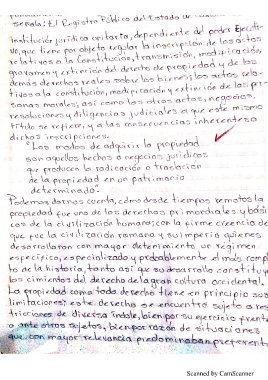 señala: El Registro Público del Estado de
Institución jurídica unitaria, dependiente del poder Ejecuti-
vo, que tiene por objeto regular la inscripción de los actos
relativos a la Constitución, transmisión, modificación,
gravamen y extinción del derecho de propiedad y de los
demás derechos reales sobre los bienes; los actos rela-
tivos a la constitución, modificación y extinción de las per-
sonas morales; así como los otros actos, negocios
resoluciones y diligencias judiciales a que este mismo
se refiere, y a las consecuencias inherentes a
dichas inscripciones.
"Los modos de adquirir la propiedad
son aquellos hechos o negocios jurídicos
que producen la radicación o traslación
de la propiedad en un patrimonio
determinado".
Podemos darnos cuenta, cómo desde tiempos remotos la
propiedad fue uno de los derechos primordiales y bási-
cos de la civilización humana; con la firme creencia de
que fue la civilización romana y su imperio quienes
desarrollaron con mayor detenimiento un régimen
específico, especializado y probablemente el más comple
to de la historia, tanto así que su desarrollo constituyó
los cimientos del derecho de la gran cultura occidental.
La propiedad como todo derecho tiene en principio sus
limitaciones; este derecho se encuentra sujeto a res
tricciones de diversa índole, bien por su ejercicio frente
o ante otros sujetos, bien por razón de situaciones
que con mayor relevancia predominaban
Scanned by CamScanner